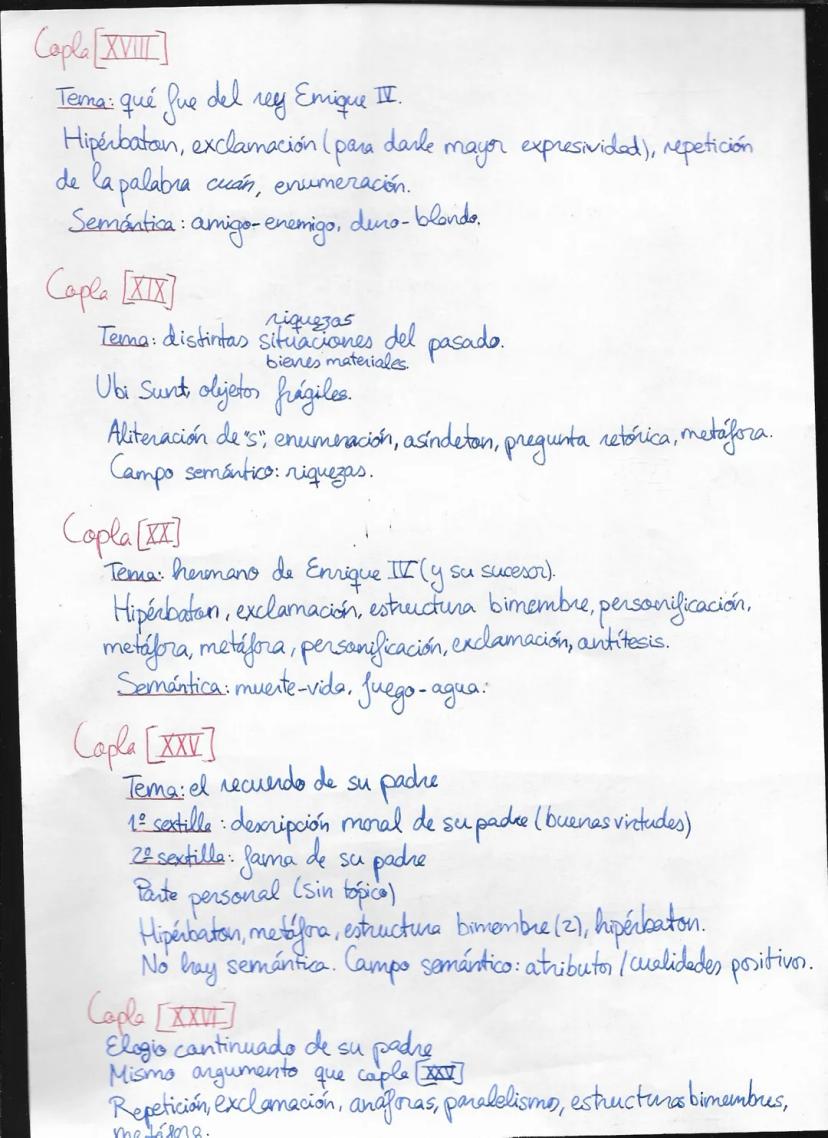 Copla [XVIII]
Tema: qué fue del rey Enrique IV.
Hipérbaton, exclamación (para darle mayor expresividad), repetición
de la palabra cuán, enumeración.
Semántica: amigo-enemigo, duro-blando.
Copla [XIX]
riquezas
Tema: distintas situaciones del pasado.
bienes materiales.
Ubi Sunt, objetos frágiles.
Aliteración de "s", enumeración, asíndeton, pregunta retórica, metáfora.
Campo semántico: riquezas.
Copla [XX]
Tema: hermano de Enrique IV (y su sucesor).
Hipérbaton, exclamación, estructura bimembre, personificación,
metáfora, metáfora, personificación, exclamación, antítesis.
Semántica: muerte-vida, fuego-agua.
Copla [XXV]
Tema: el recuerdo de su padre
1º sextilla: descripción moral de su padre (buenas virtudes)
2º sextilla: fama de su padre
Parte personal (sin tópico)
Hipérbaton, metáfora, estructura bimembre (2), hipérbaton.
No hay semántica. Campo semántico: atributos/cualidades positivos.
Copla [XXVI]
Elogio continuado de su padre
Mismo argumento que copla [XXV]
Repetición, exclamación, anáforas, paralelismo, estructuras bimembres,
metáfora.